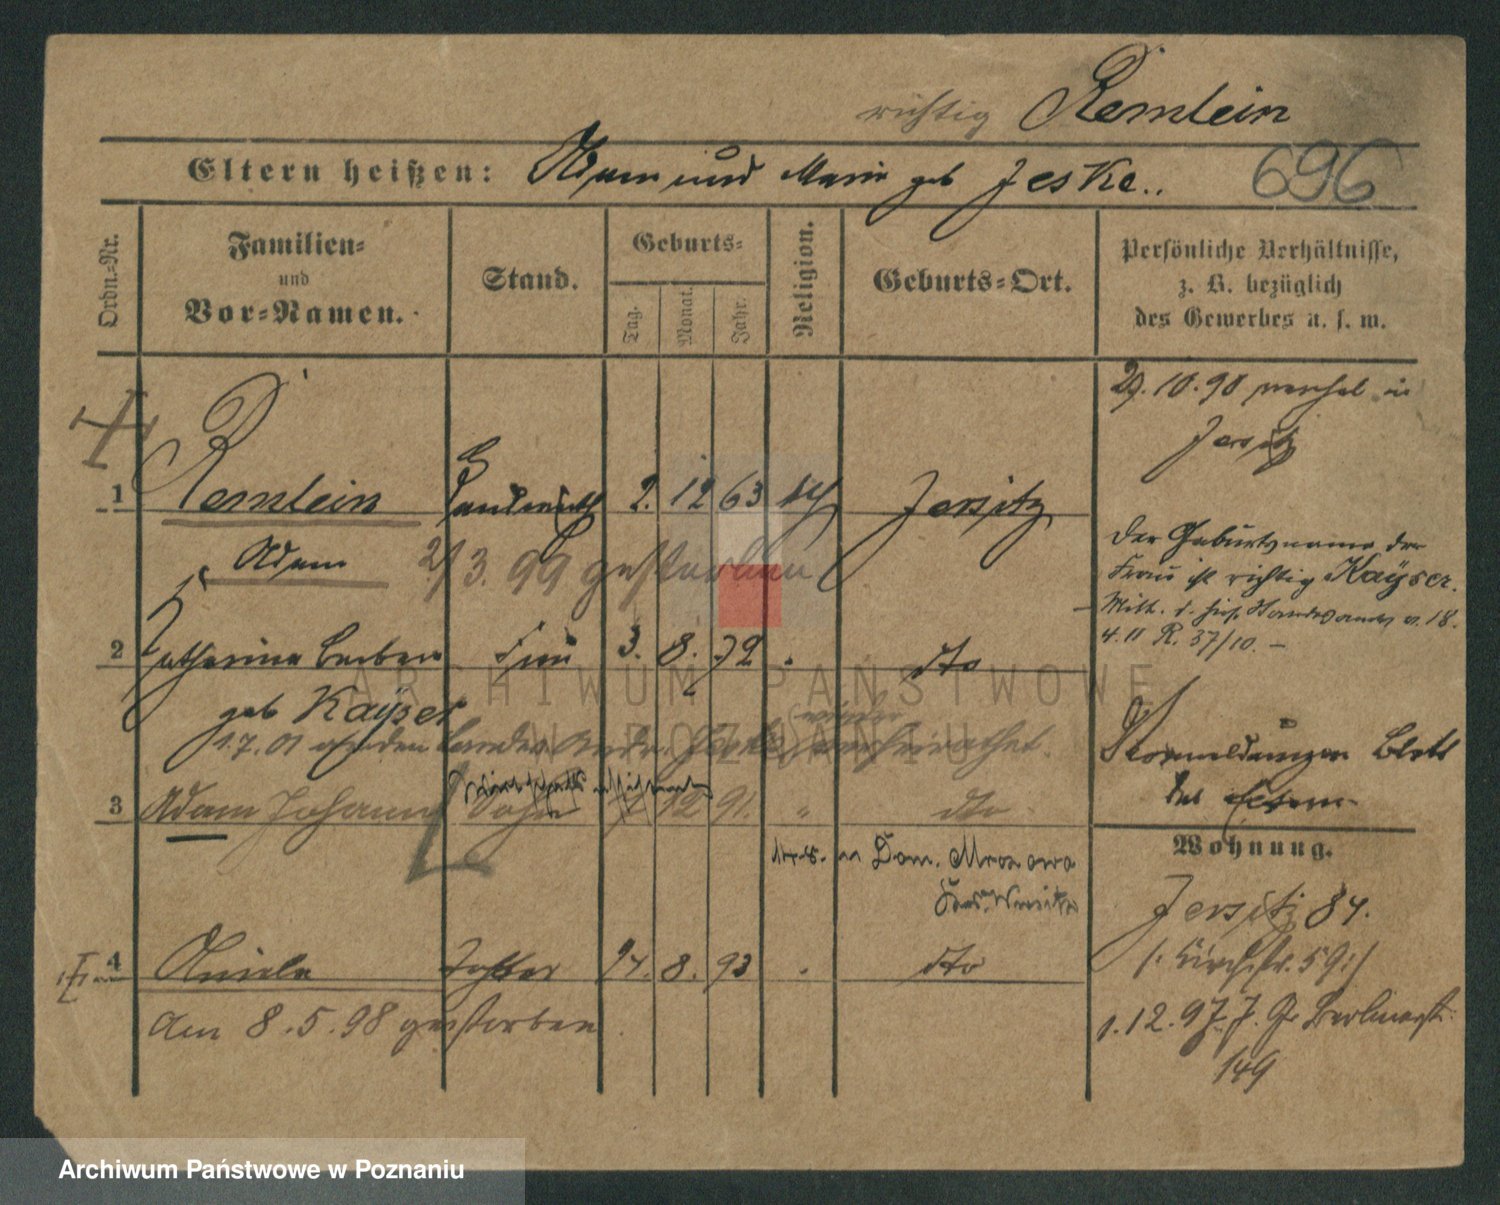 richtig Remlein
Eltern heißen: Adam und Marie geb Jeske.
696
Ordn.=Nr.
Familien=
und
Vor=Namen.
Stand.
Geburts=
Tag.
Monat.
Jahr.
Religion.
Geburts=Ort.
Persönliche Verhältnisse,
z. B. bezüglich
des Gewerbes u. s. w.
29.10.90 in
Jersitz
1 Remlein Landwirth 2. 12 63 kth Jersitz
Adam
2/3. 99 gestorben
Der Geburtsname der
Frau ist richtig Kayser.
Mitth. d. hies. Standesamts v. 18.
4. 11 R. 37/10. –
2 Katharina Barbara Frau 3. 8. 72 " dto
geb Kayser
1.7.01 wieder verheirathet.
Vormeldungen Blatt
der Eltern
3 Adam Johann Sohn 12 91. " dto
Dom. Mrozowo
Wohnung.
Jersitz 84.
(: Kirchstr. 59:)
4 Aniela Tochter 24. 8. 93 " dto
am 8.5.98 gestorben.
1.12.97 Berlinerstr.
149
ARCHIWUM PAŃSTWOWE
W POZNANIU
Archiwum Państwowe w Poznaniu